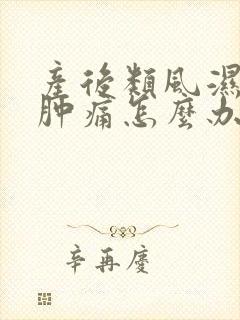 產後類風濕
肿痛怎麼办
辛再慶